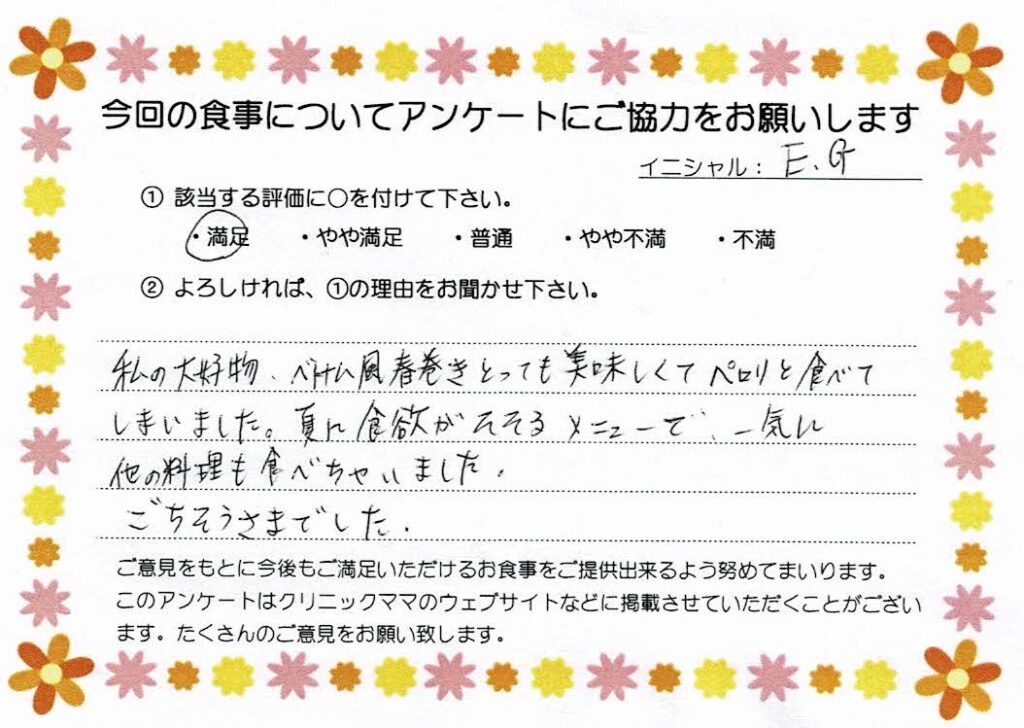 今回の食事についてアンケートにご協力をお願いします
イニシャル: E.G
① 該当する評価に○を付けて下さい。
・満足 ・やや満足 ・普通 ・やや不満 ・不満
② よろしければ、①の理由をお聞かせ下さい。
私の大好物、ベトナム風春巻きとっても美味しくてペロリと食べて
しまいました。夏に食欲がそそるメニューで、一気に
他の料理も食べちゃいました。
ごちそうさまでした。
ご意見をもとに今後もご満足いただけるお食事をご提供出来るよう努めてまいります。
このアンケートはクリニックママのウェブサイトなどに掲載させていただくことがござい
ます。たくさんのご意見をお願い致します。